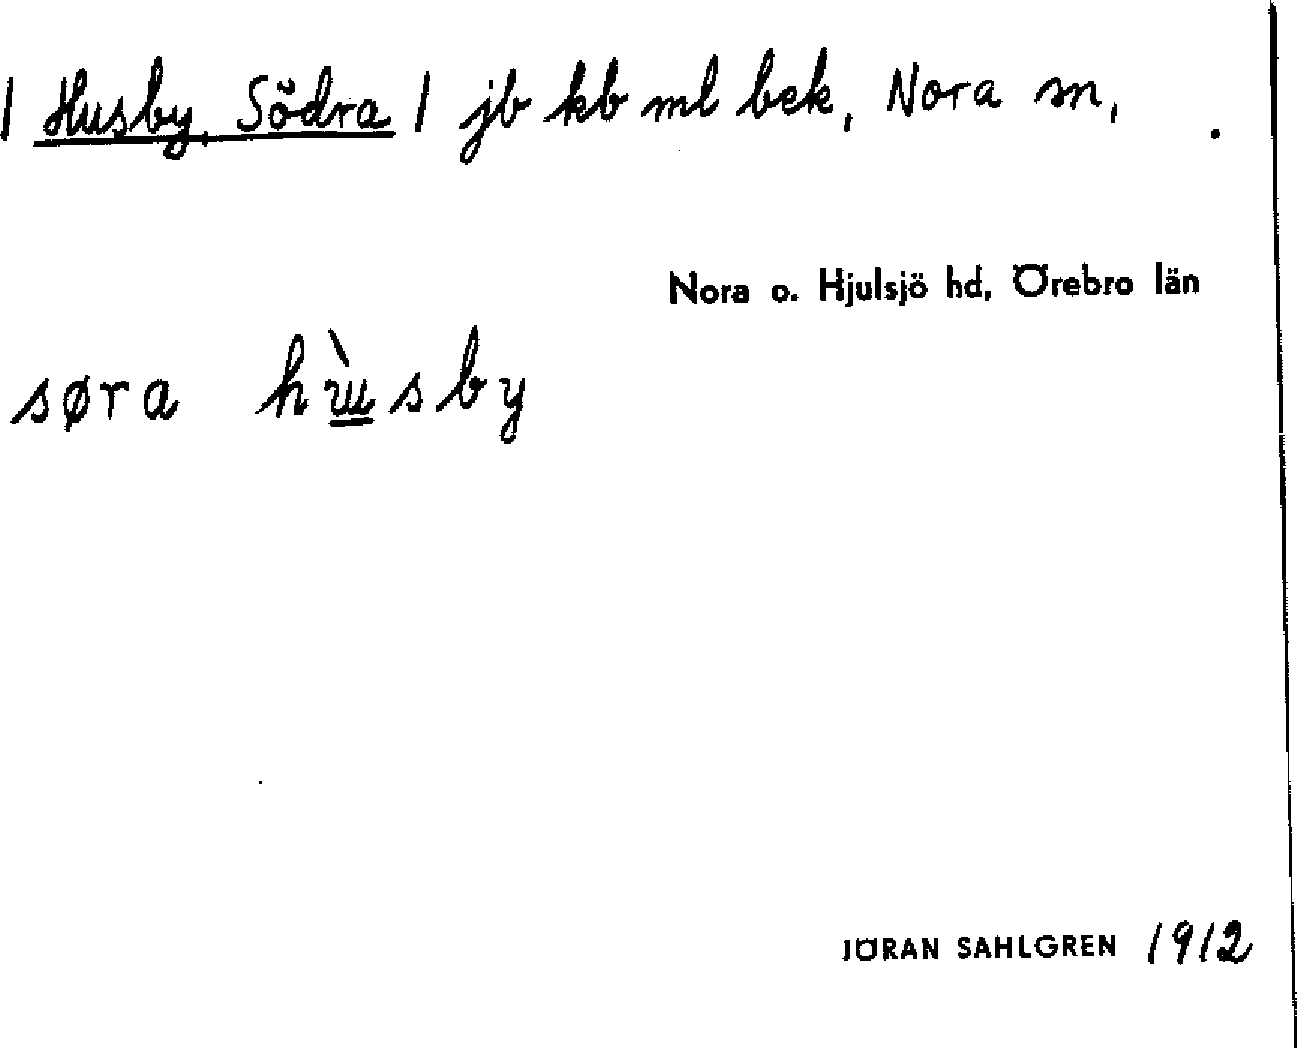 | Husby, Södra | jb kb ml bek, Nora sn,
Nora o. Hjulsjö hd, Örebro län
søra hɯ̲̀sby
JÖRAN SAHLGREN 1912